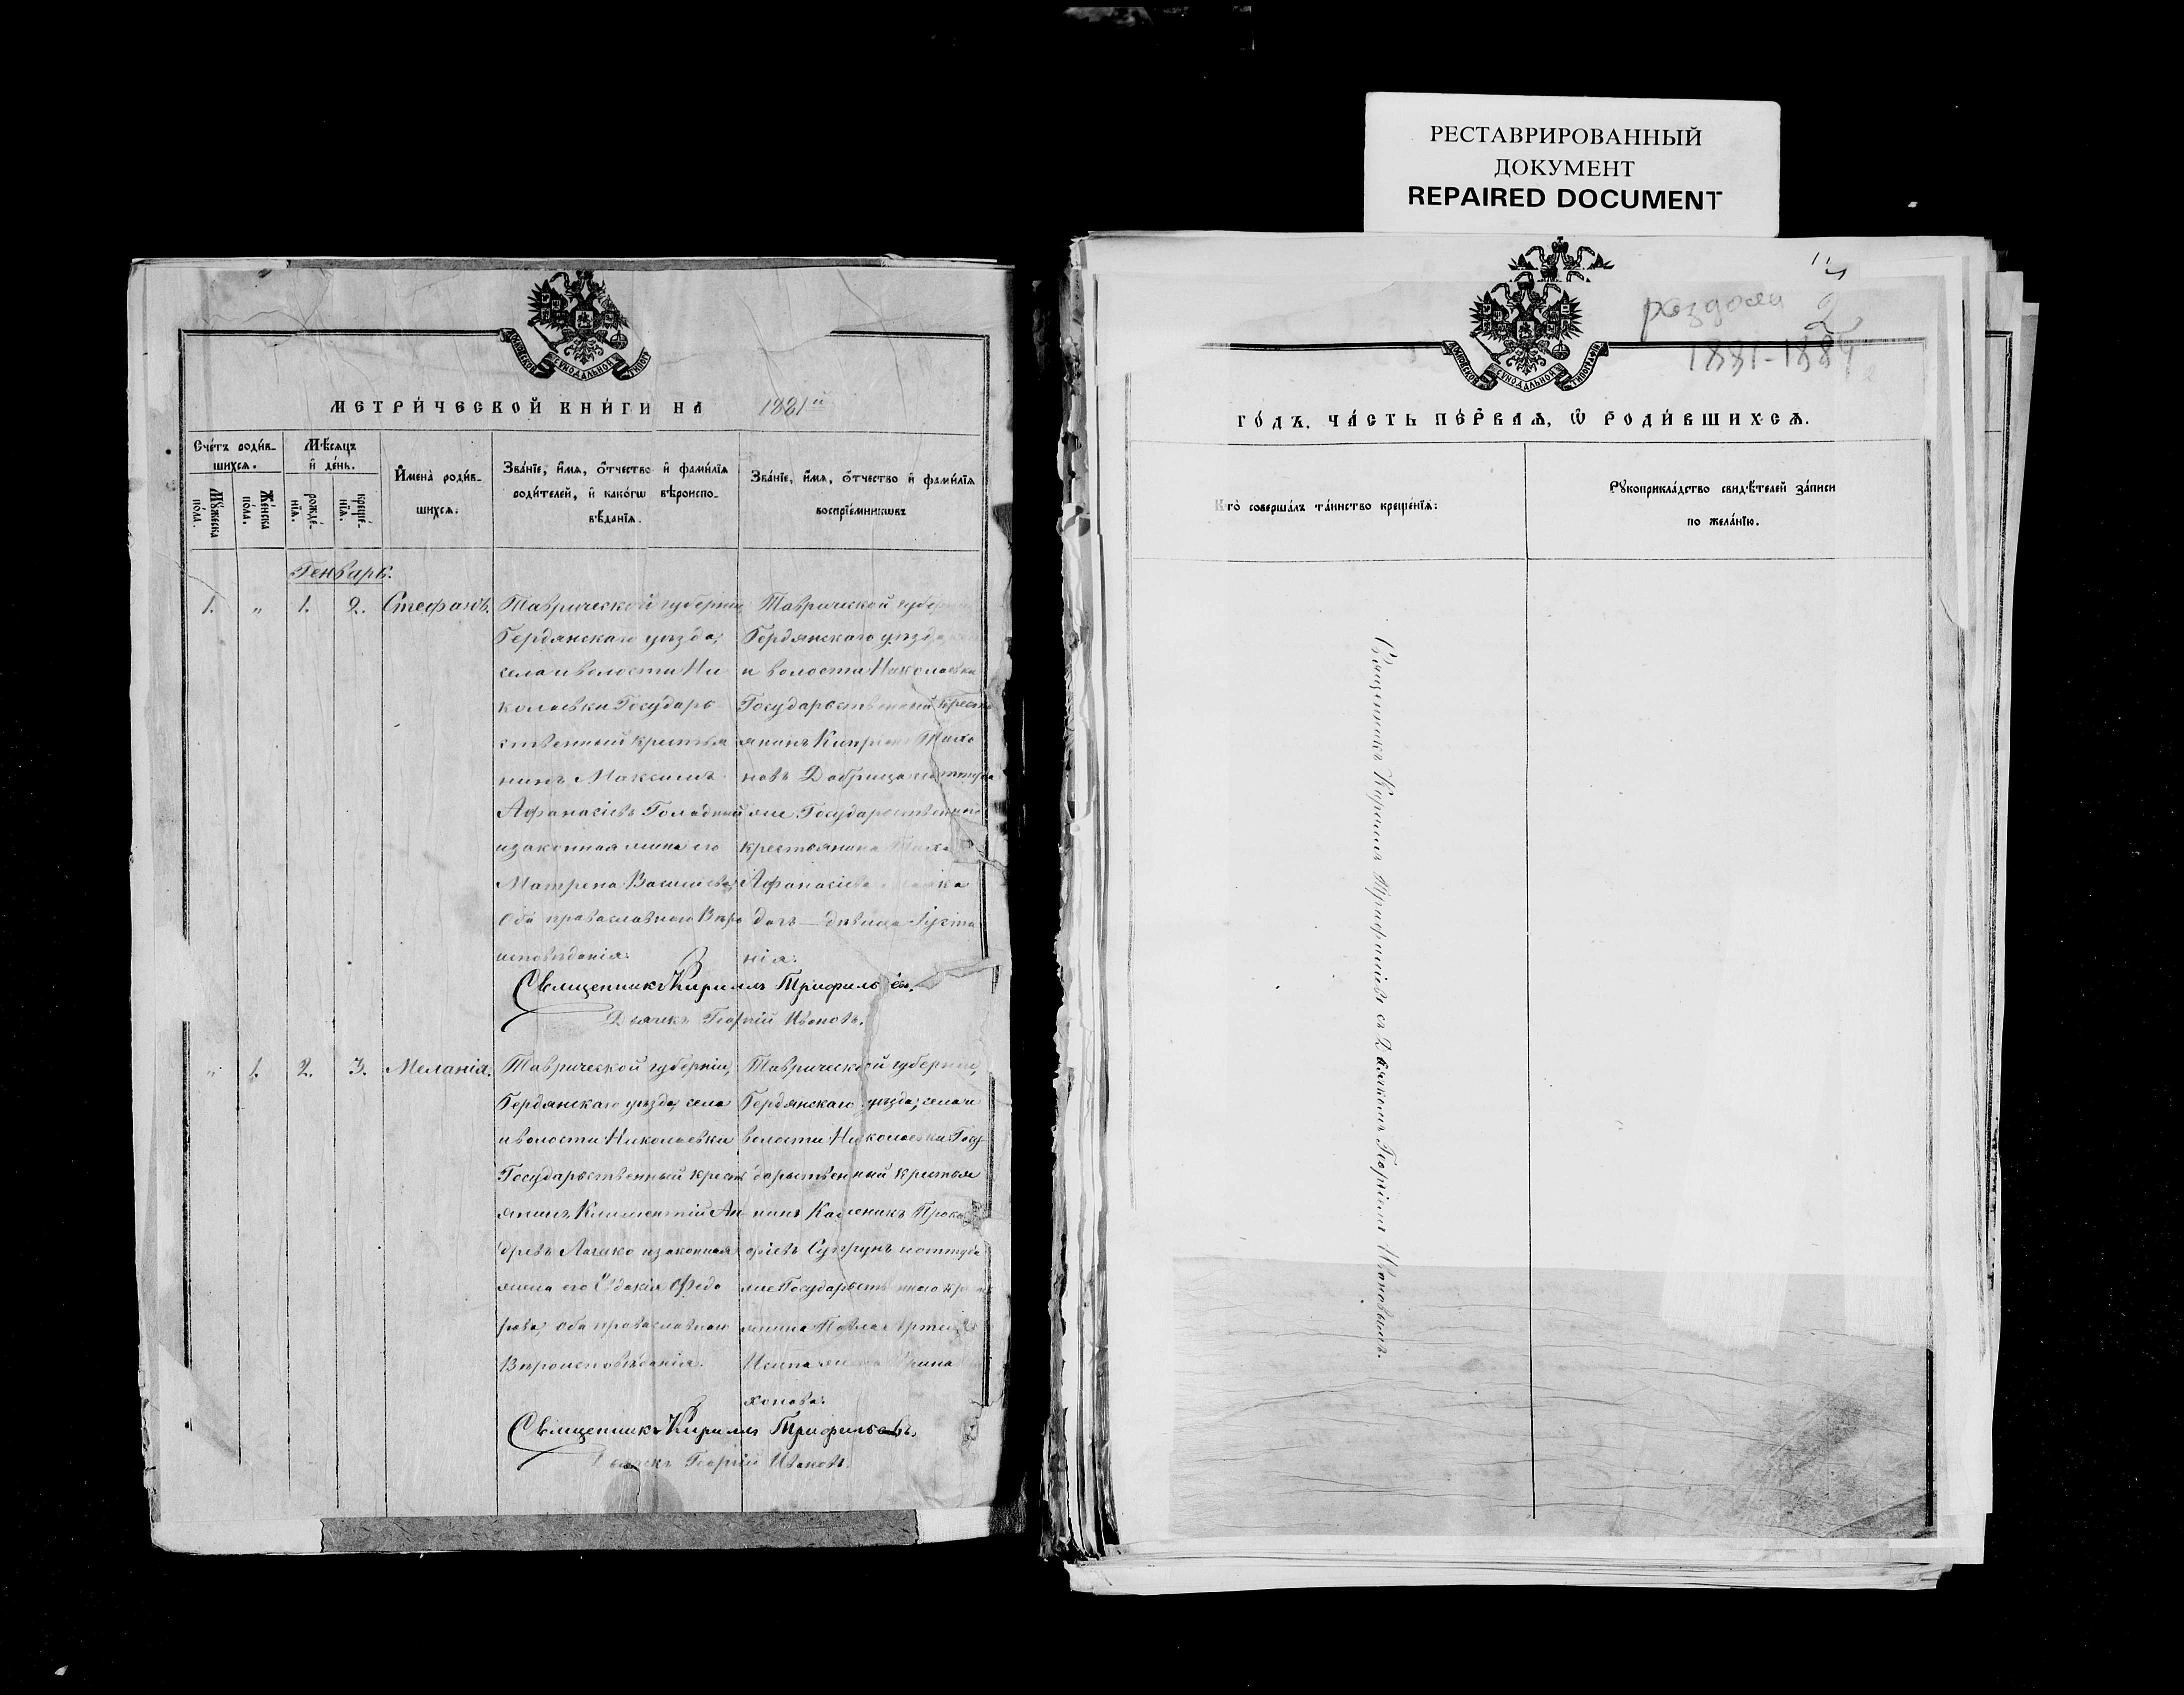 РЕСТАВРИРОВАННЫЙ
ДОКУМЕНТ
REPAIRED DOCUMENT
МЕТРИ́ЧЕСКОЙ КНИ́ГИ НА 1881й
Сче́тъ роди́в-
шихся.
Мѣ́сяцъ
и҆ де́нь.
Мꙋ́жеска
по́ла.
Же́нска
по́ла.
рожде́-
нїѧ.
креще́-
нїѧ.
И҆мена̀ роди́в-
шихсѧ.
Зва́нїе, и҆́мѧ, ѻ҆́тчество и҆ фами́лїѧ
роди́телей, и҆ како́гѡ вѣроиспо-
вѣ́данїѧ.
Зва́нїе, и҆́мѧ, ѻ҆́тчество и҆ фами́лїѧ
воспрїе́мникѡвъ
Генварь.
1. " 1. 2. Стефанъ.
Таврической губерніи
Бердянскаго уѣзда,
села и волости Ни
колаевки Государь
ственный крестья
нинъ Максимъ
Афанасіевъ Голодный
и законная жена его
Матрена Васильева,
Оба православнаго Веро
исповѣданія.
Таврической губерніи
Бердянскаго уѣзда
и волости Николаевки
Государьственный крест
янинъ Кипріанъ Тихо
новъ
Государственнаго
крестьянина
Афанасіева
дочь — дѣвица
нія.
Священникъ Кириллъ Трифильевъ.
Дьячекъ Георгій Ивановъ.
" 1. 2. 3. Меланія.
Таврической губерніи,
Бердянскаго уѣзда, села
и волости Николаевки
Государьственный крест
янинъ Климентій Ан
древъ и законная
жена его Евдокія Федо
рова, оба православнаго
Вероисповѣданія.
Таврической губерніи,
Бердянскаго уѣзда, села и
волости Николаевки Госу
дарьственный крестья
нинъ Каленикъ Проко
фіевъ Супрунъ и оттуда
же Государьственнаго крест
янина Павла
жена
Священникъ Кириллъ Трифильевъ.
Дьячекъ Георгій Ивановъ.
2
1881-1884
ГО́ДЪ, ЧА́СТЬ ПЕ́РВАѦ, Ѡ҆ РОДИ́ВШИХСѦ.
Кто̀ соверша́лъ та́инство креще́нїѧ:
Рꙋкоприкла́дство свидѣ́телей за́писи
по жела́нїю.
Священникъ Кириллъ Трифильевъ съ Дьячкомъ Георгіемъ Ивановымъ.